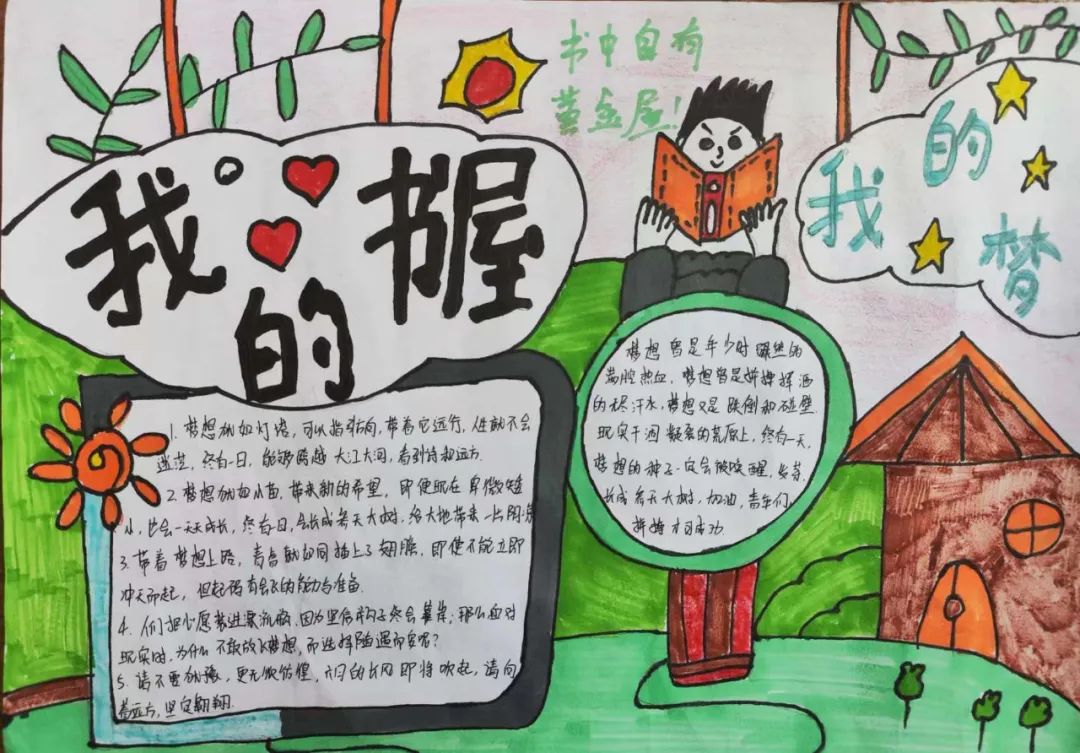 我的书屋
书中自有
黄金屋!
我的梦
1. 梦想犹如灯塔,可以指引方向,带着它远行,人生就不会
迷茫,终有一日,能够跨越大江大河,看到诗和远方.
2. 梦想犹如小苗,带来新的希望,即便现在卑微矮
小,也会一天天成长,终有日,会长成参天大树,给大地带来一片阴凉
3. 带着梦想上路,青春就如同插上了翅膀,即使不能立即
冲天而起,但起码有会飞的能力与准备.
4. 人们把心愿装进漂流瓶,因为坚信有勾子终会靠岸;那么面对
现实时,为什么不敢放飞梦想,而选择随遇而安呢?
5. 请不要犹豫,更无须彷徨,六月的长风即将吹起,请向
着远方,坚定翱翔.
梦想曾是年少时骤然的
满腔热血,梦想曾是拼搏挥洒
的汗水,梦想又是跌倒和碰壁.
现实干涸龟裂的荒原上,终有一天,
梦想的种子一定会被唤醒,发芽.
长成参天大树,加油,青年们
拼搏才可成功.